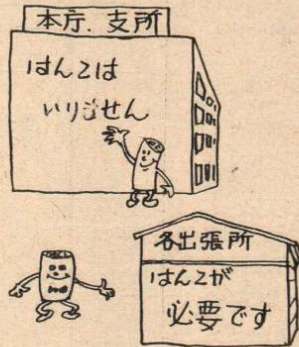 本庁、支所
はんこは
いりません
各出張所
はんこが
必要です